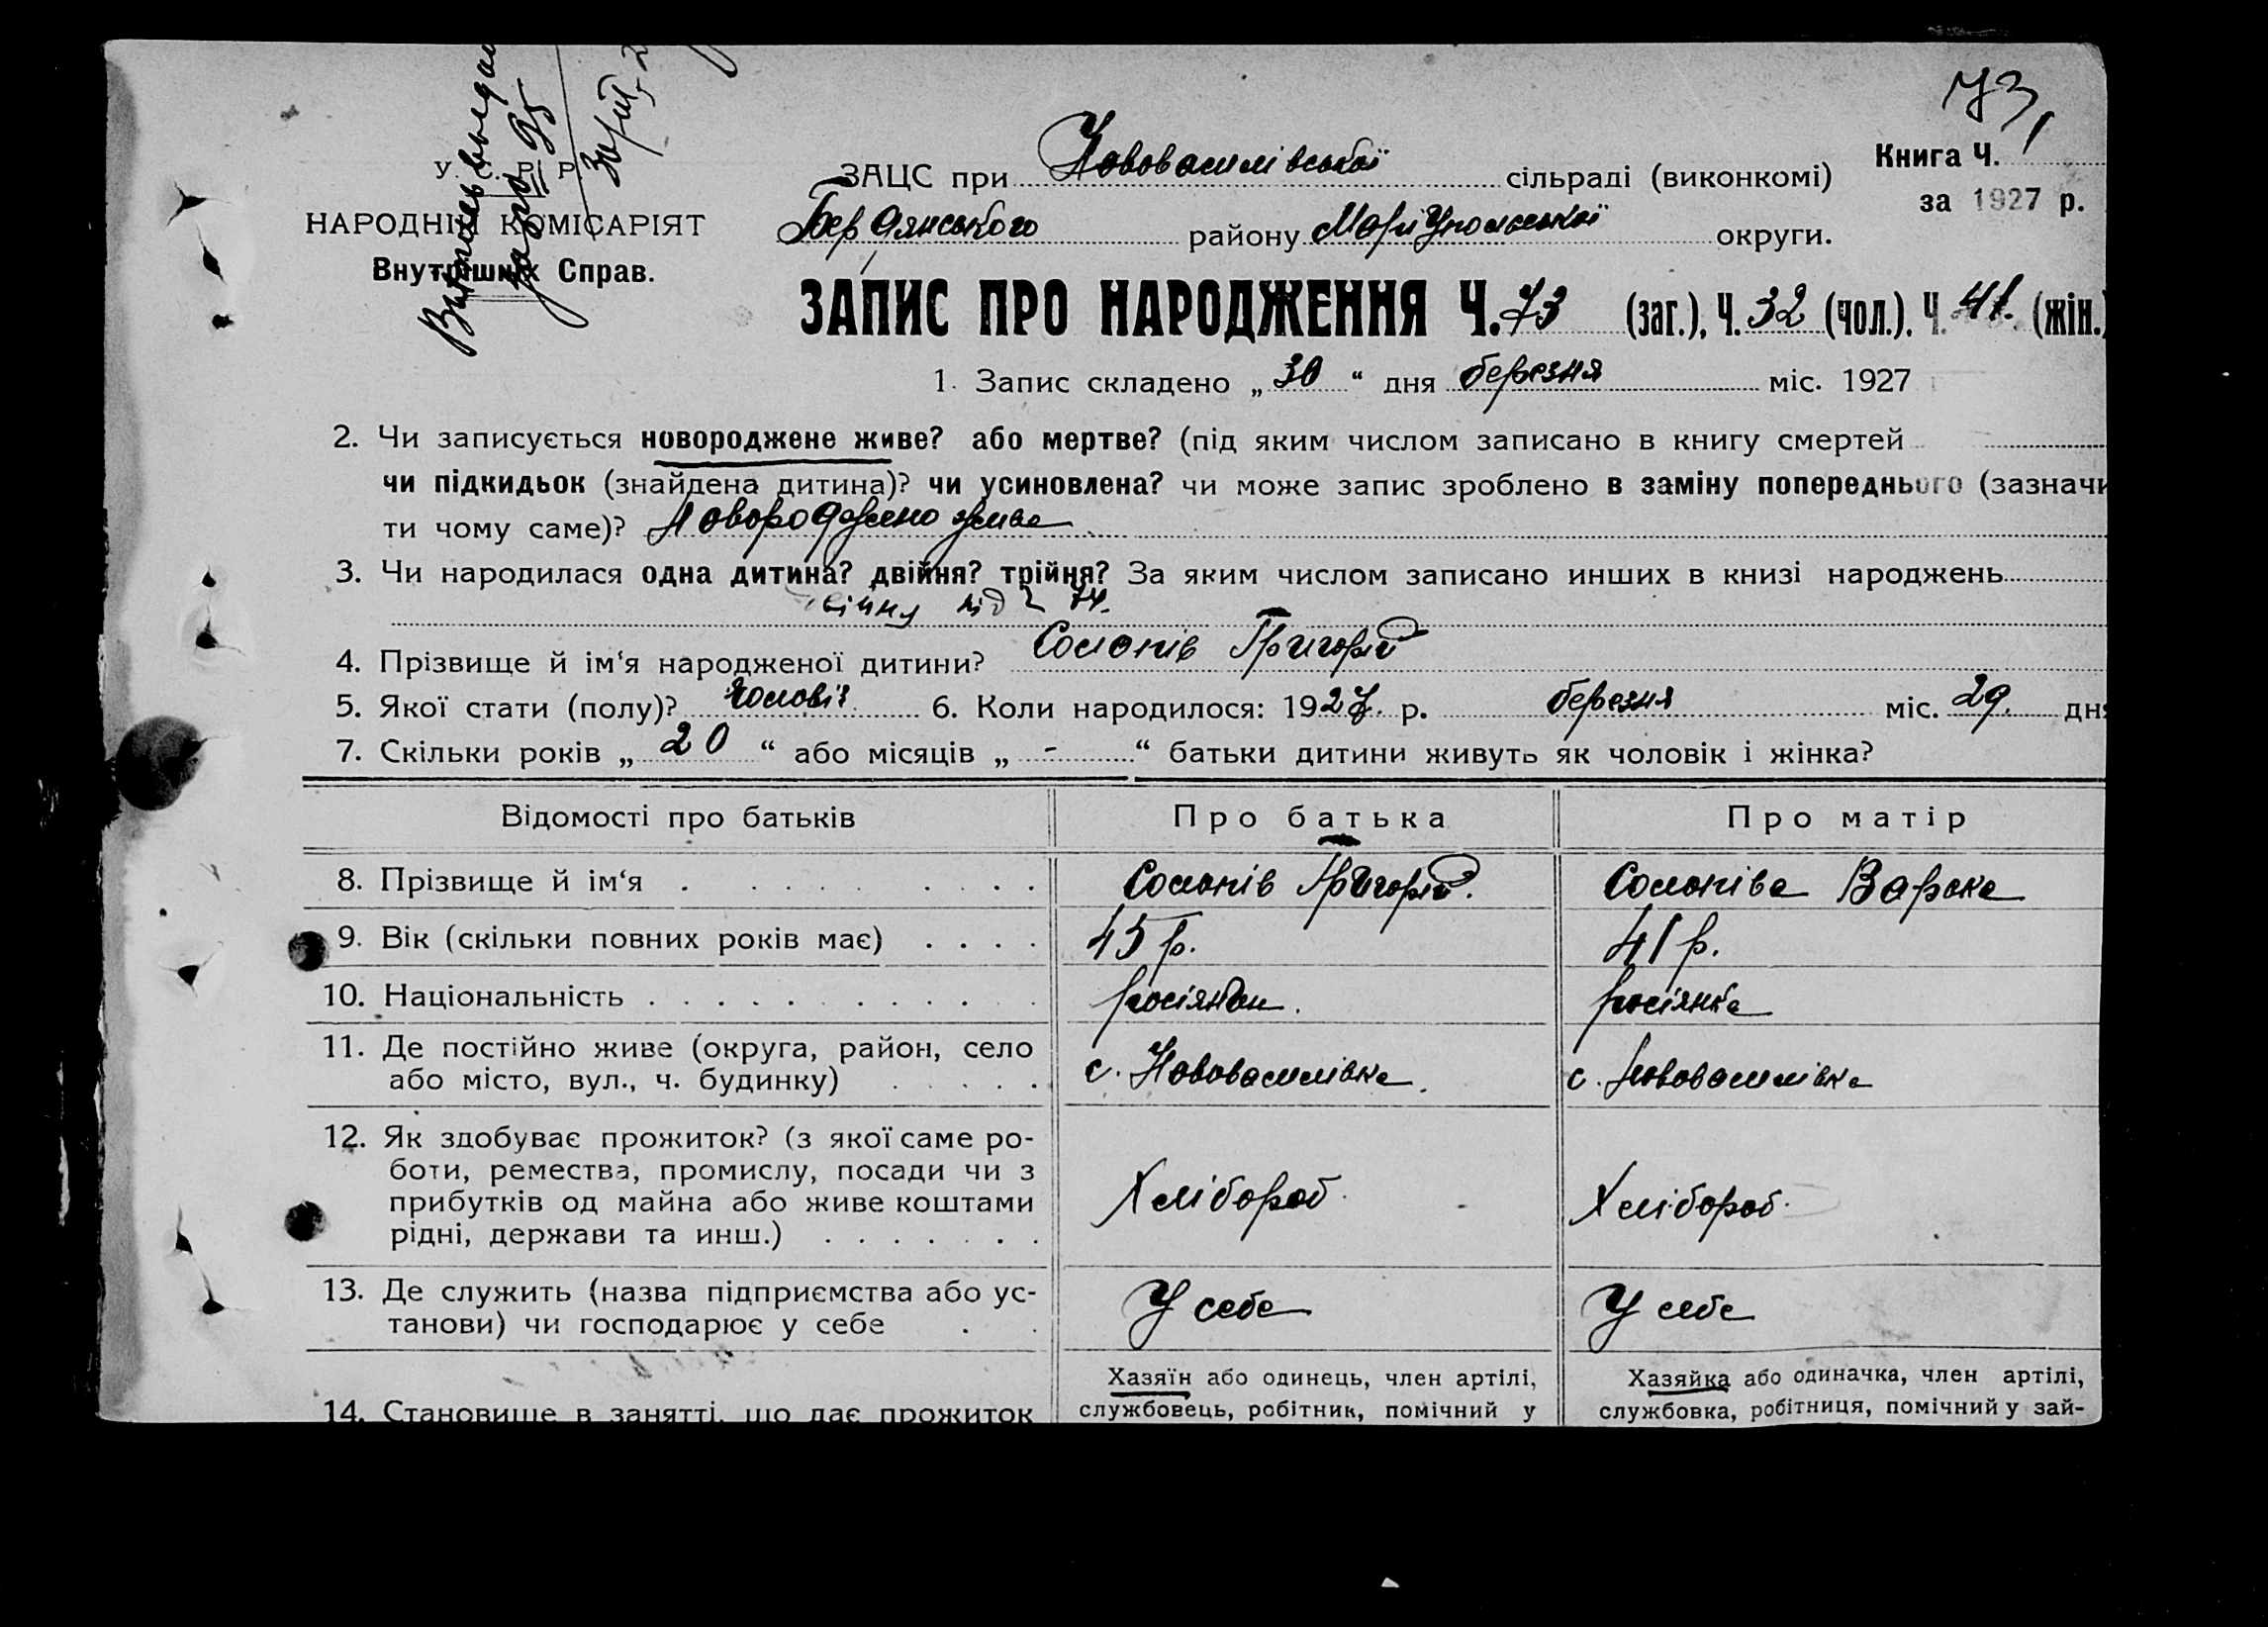 73
Книга Ч. 1
за 1927 р.
У. С. Р. Р.
НАРОДНІЙ КОМІСАРІЯТ
Внутрішних Справ.
ЗАЦС при Нововасилівської сільраді (виконкомі)
Бердянського району Маріупольської округи.
ЗАПИС ПРО НАРОДЖЕННЯ Ч. 73 (заг.), Ч. 32 (чол.), Ч. 41. (жін.)
1. Запис складено „30“ дня березня міс. 1927
2. Чи записується новороджене живе? або мертве? (під яким числом записано в книгу смертей
чи підкидьок (знайдена дитина)? чи усиновлена? чи може запис зроблено в заміну попереднього (зазначи
ти чому саме)? Новороджено живе
3. Чи народилася одна дитина? двійня? трійня? За яким числом записано инших в книзі народжень
під 74.
4. Прізвище й ім‘я народженої дитини? Солопів Григорій
5. Якої стати (полу)? чоловіч. 6. Коли народилося: 1927. р. березня міс. 29. дня
7. Скільки років „20“ або місяців „-“ батьки дитини живуть як чоловік і жінка?
Відомості про батьків Про батька Про матір
8. Прізвище й ім‘я Солопів Григорій. Солопіва
9. Вік (скільки повних років має) 45 р. 41 р.
10. Національність росіянин. росіянка
11. Де постійно живе (округа, район, село
або місто, вул., ч. будинку) с. Нововасилівка с. Нововасилівка
12. Як здобуває прожиток? (з якої саме ро-
боти, ремества, промислу, посади чи з
прибутків од майна або живе коштами
рідні, держави та инш.) Хлібороб Хлібороб.
13. Де служить (назва підприємства або ус-
танови) чи господарює у себе У себе У себе
14. Становище в занятті, що дає прожиток
Хазяїн або одинець, член артілі,
службовець, робітник, помічний у
Хазяйка або одиначка, член артілі,
службовка, робітниця, помічний у зай-